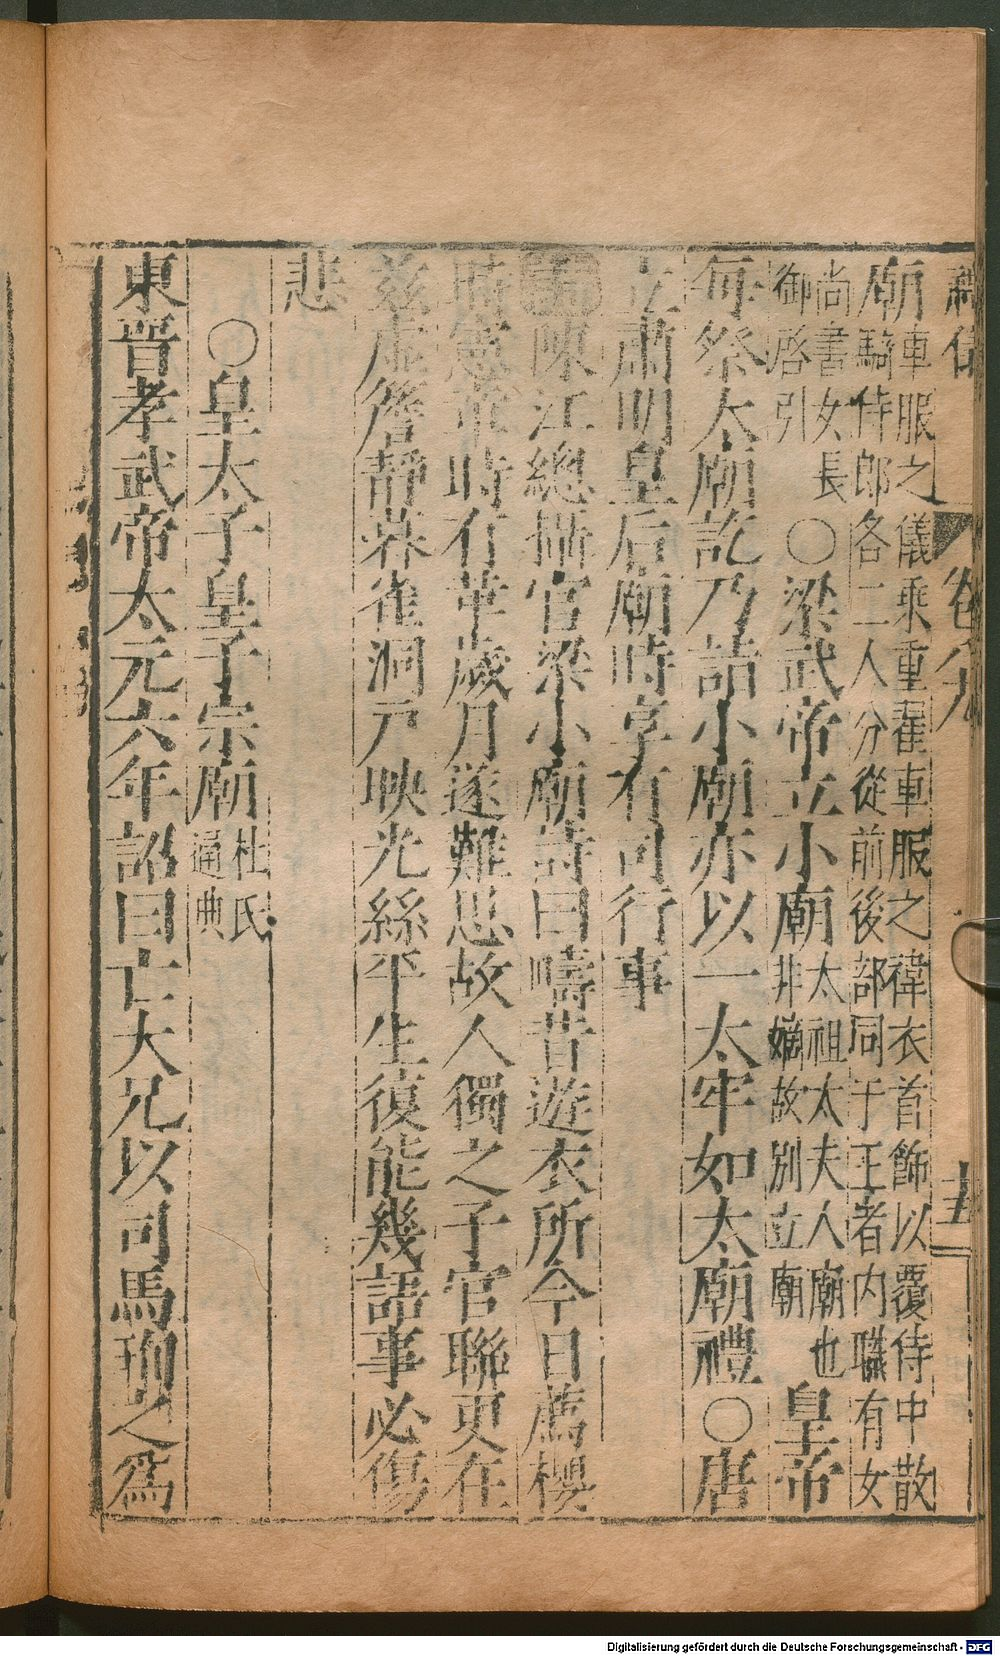 卷八九
廟車服之儀乘重翟車服之褘衣首飾以覆侍中散
騎侍郎各二人分從前後部同于王者內職有女
尚書女長
御啓引
○梁武帝立小廟
太祖太夫人廟也
非嫡故別立廟
皇帝
每祭太廟訖乃詣小廟亦以一太牢如太廟禮○唐
立肅明皇后廟時享有司行事
陳江總攝官梁小廟詩曰疇昔遊衣所今日薦櫻
時寒華時有華歲月遂難思故人獨之子官聯更在
茲虛簷靜暮雀洞戸映光絲平生復能幾語事必傷
悲
○皇太子皇子宗廟
杜氏
通典
東晉孝武帝太元六年詔曰亡大兄以司馬珣之爲
Digitalisierung gefördert durch die Deutsche Forschungsgemeinschaft - DFG